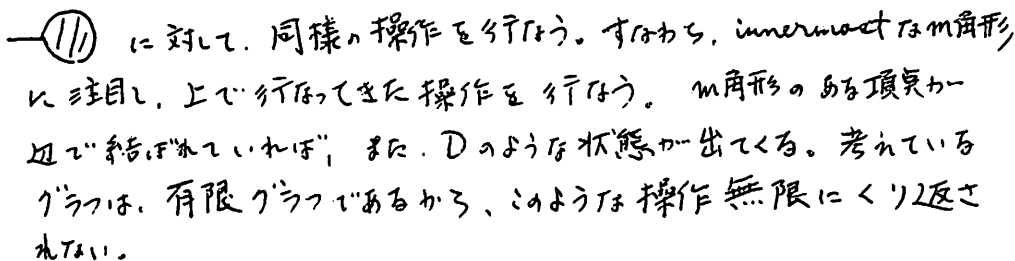 に対して、同様の操作を行なう。すなわち、innermostなm角形
に注目し、上で行なってきた操作を行なう。m角形のある頂点が一
辺で結ばれていれば、また、Dのような状態が出てくる。考えている
グラフは、有限グラフであるから、このような操作無限にくり返さ
れない。